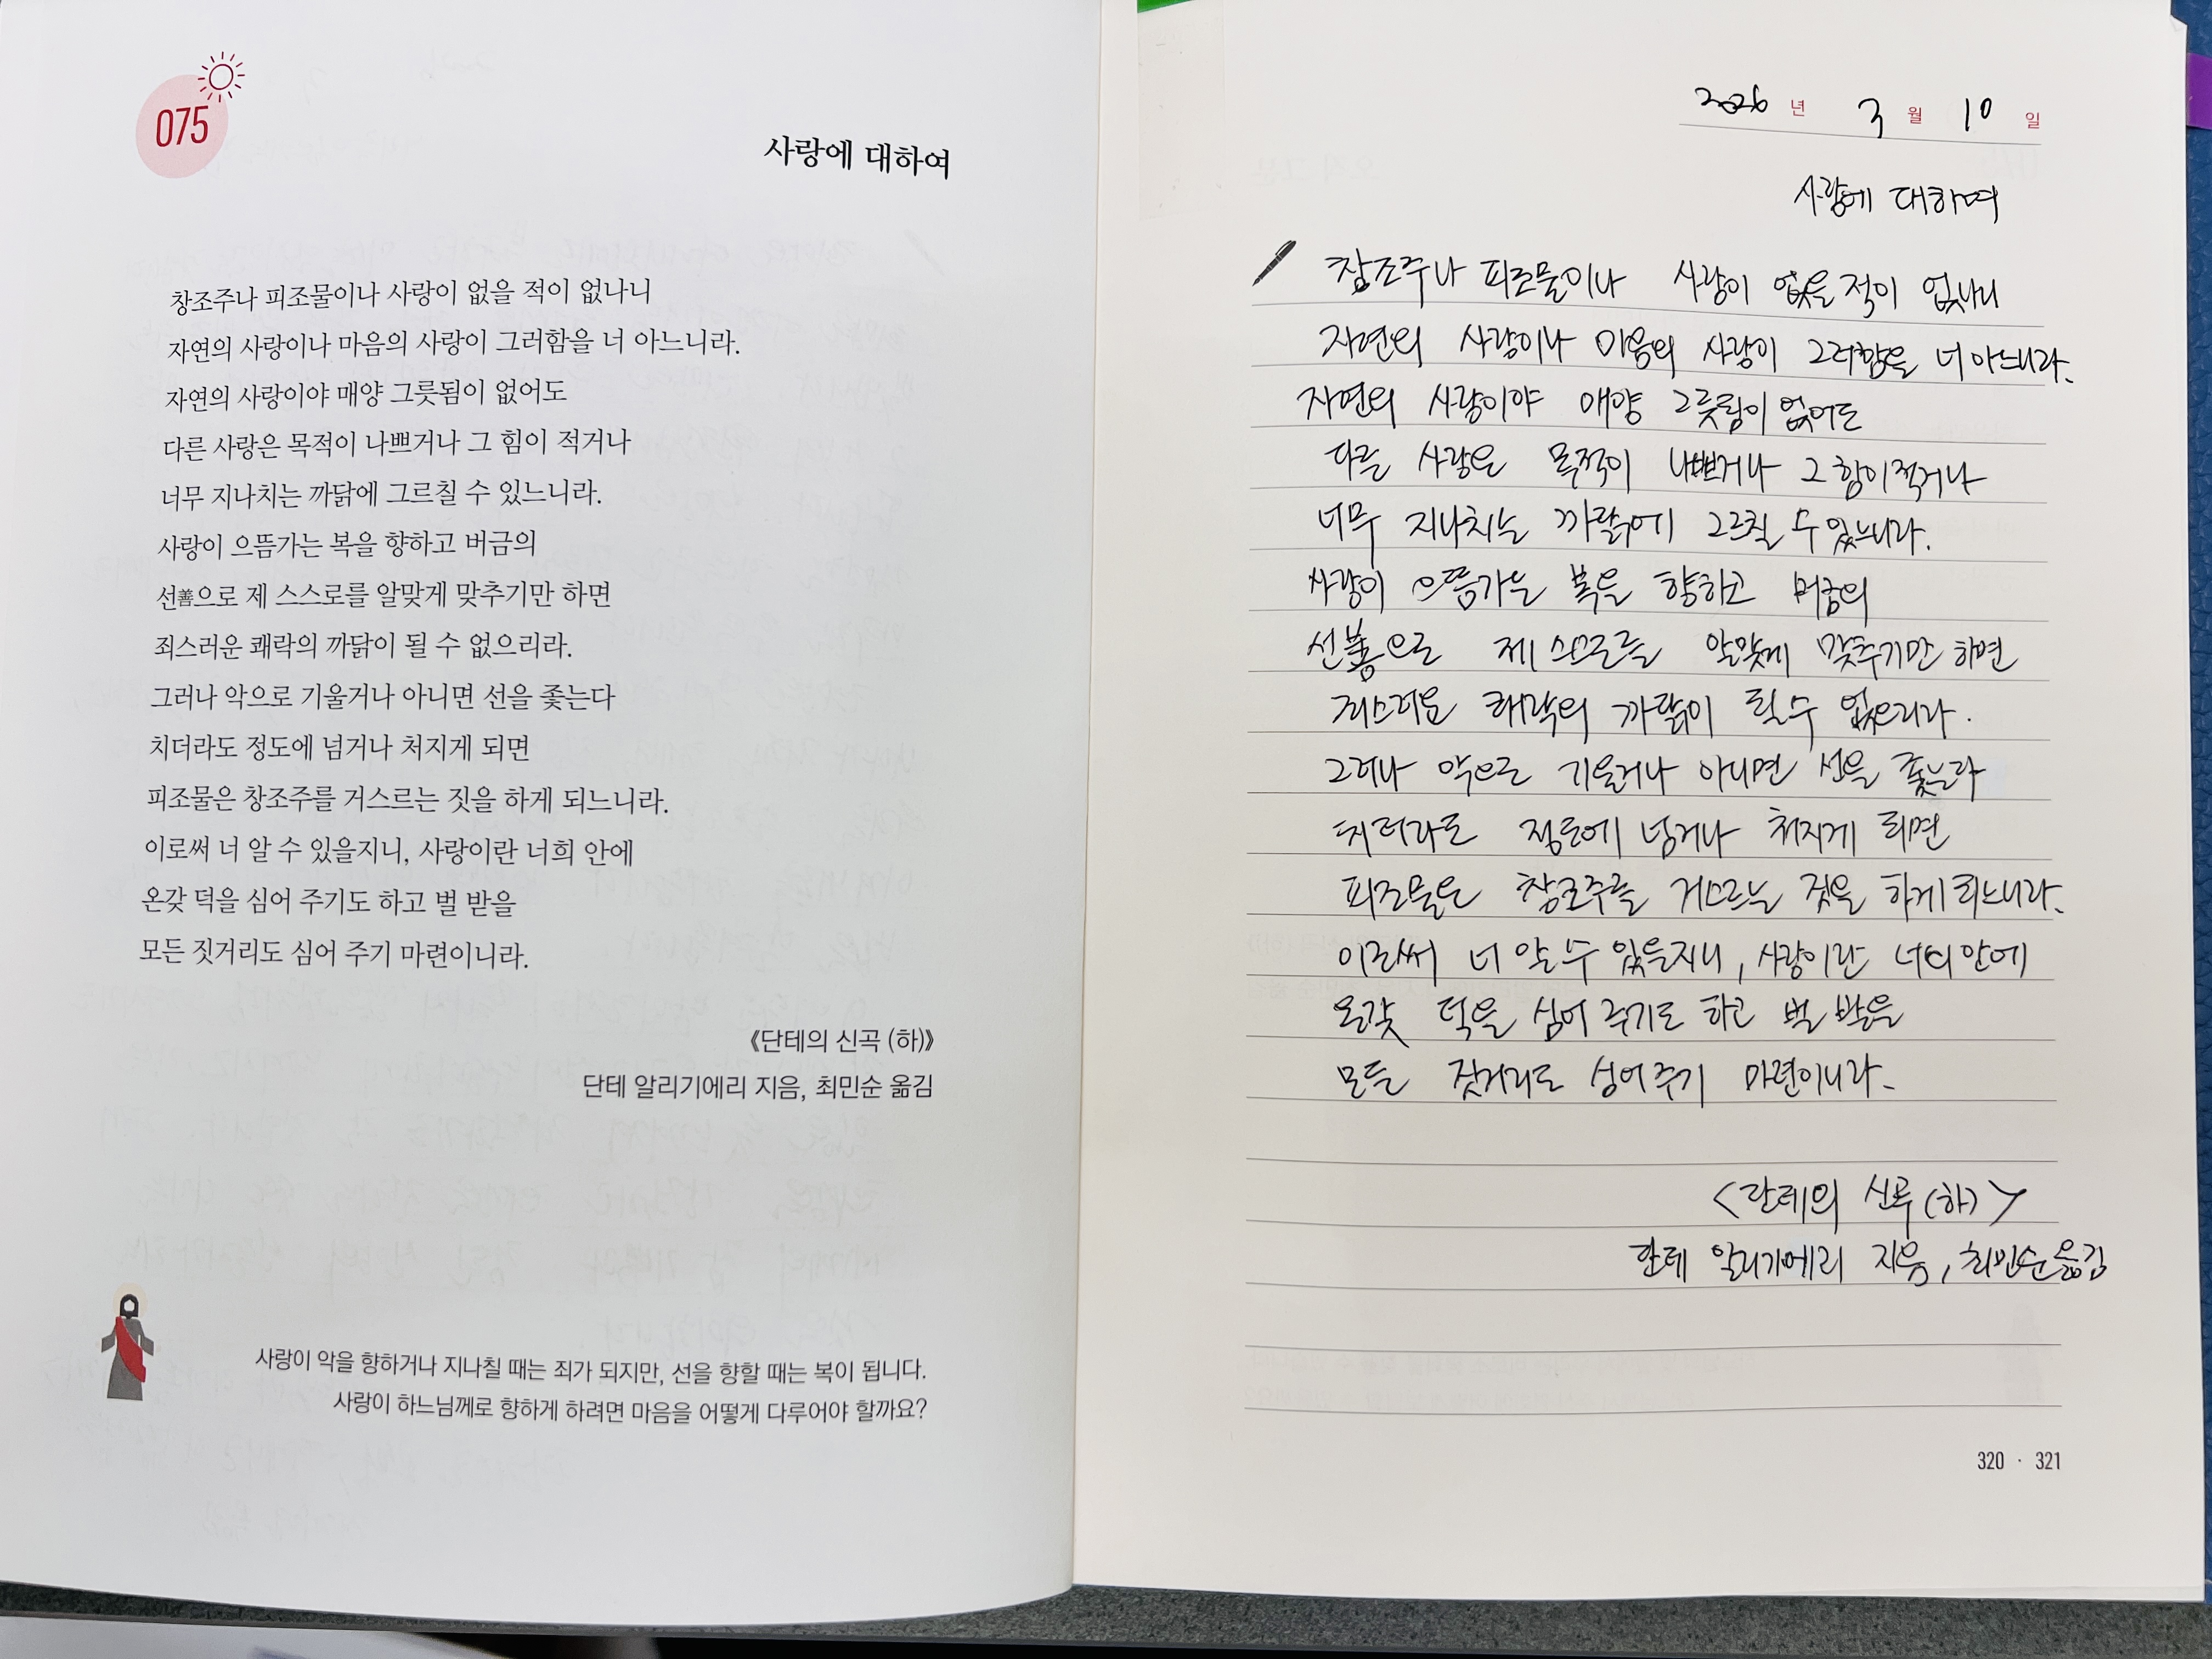 075
사랑에 대하여
창조주나 피조물이나 사랑이 없을 적이 없나니
자연의 사랑이나 마음의 사랑이 그러함을 너 아느니라.
자연의 사랑이야 매양 그릇됨이 없어도
다른 사랑은 목적이 나쁘거나 그 힘이 적거나
너무 지나치는 까닭에 그르칠 수 있느니라.
사랑이 으뜸가는 복을 향하고 버금의
선善으로 제 스스로를 알맞게 맞추기만 하면
죄스러운 쾌락의 까닭이 될 수 없으리라.
그러나 악으로 기울거나 아니면 선을 좇는다
치더라도 정도에 넘거나 처지게 되면
피조물은 창조주를 거스르는 짓을 하게 되느니라.
이로써 너 알 수 있을지니, 사랑이란 너희 안에
온갖 덕을 심어 주기도 하고 벌 받을
모든 짓거리도 심어 주기 마련이니라.
《단테의 신곡 (하)》
단테 알리기에리 지음, 최민순 옮김
사랑이 악을 향하거나 지나칠 때는 죄가 되지만, 선을 향할 때는 복이 됩니다.
사랑이 하느님께로 향하게 하려면 마음을 어떻게 다루어야 할까요?
2026 년 3 월 10 일
사랑에 대하여
창조주나 피조물이나 사랑이 없을 적이 없나니
자연의 사랑이나 마음의 사랑이 그러함을 너 아느니라.
자연의 사랑이야 매양 그릇됨이 없어도
다른 사랑은 목적이 나쁘거나 그 힘이 적거나
너무 지나치는 까닭에 그르칠 수 있느니라.
사랑이 으뜸가는 복을 향하고 버금의
선善으로 제 스스로를 알맞게 맞추기만 하면
죄스러운 쾌락의 까닭이 될 수 없으리라.
그러나 악으로 기울거나 아니면 선을 좇는다
치더라도 정도에 넘거나 처지게 되면
피조물은 창조주를 거스르는 짓을 하게 되느니라.
이로써 너 알 수 있을지니, 사랑이란 너희 안에
온갖 덕을 심어 주기도 하고 벌 받을
모든 짓거리도 심어 주기 마련이니라.
<단테의 신곡 (하)>
단테 알리기에리 지음, 최민순 옮김
320 · 321